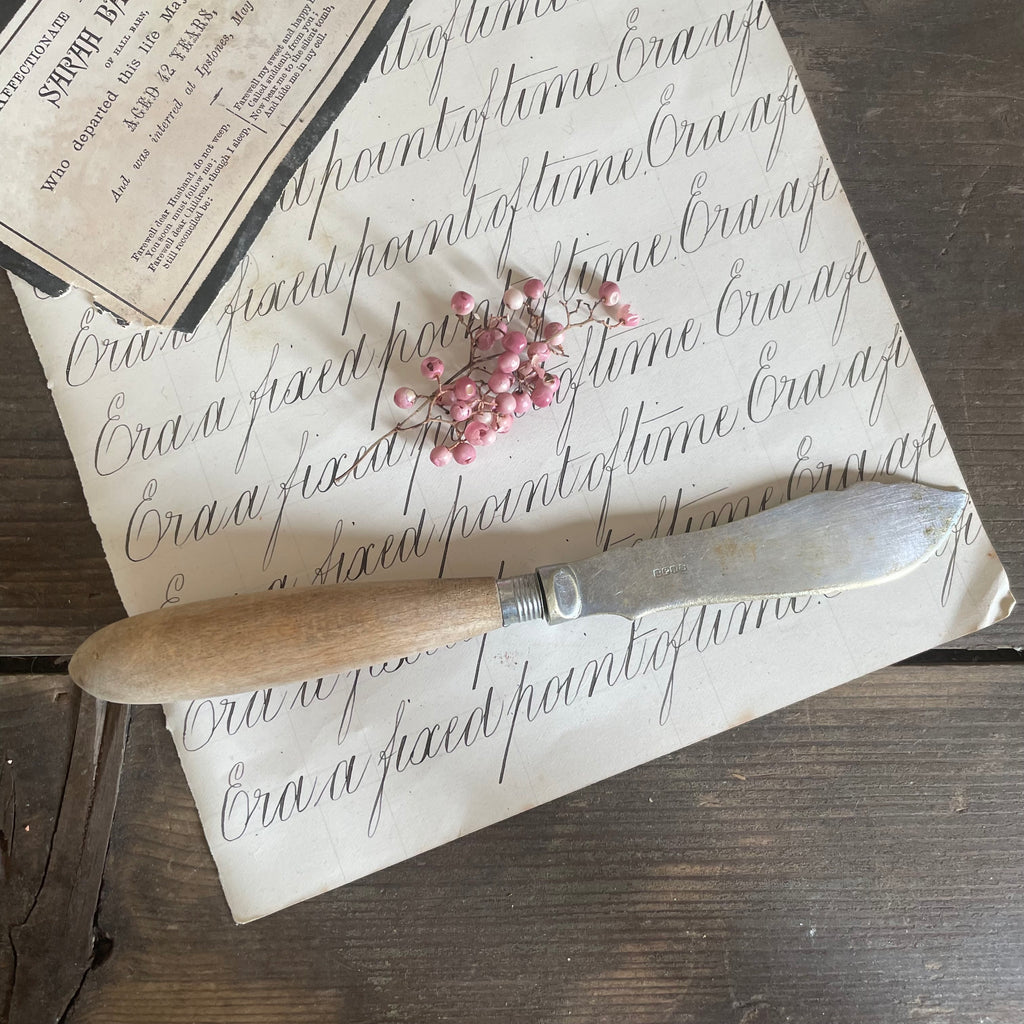 AFFECTIONATE
SARAH
OF HALL BARN,
Who departed this life
AGED 42 YEARS,
And was interred at Ipstones, May
Farewell dear Husband, do not weep,
You soon must follow me;
Farewell dear Children, though I sleep,
Still reconciled be;
Farewell my sweet and happy
Called suddenly from you
Now bear me to the silent tomb,
And hide me in my cell.
oftime. Era a fi
point of time. Era a fi
fixed point of time. Era a fi
Era a fixed point of time. Era a fi
Era a fixed point of time. Era a fi
Era a fixed point of time. Era a fi
Era a fixed point of time. Era a fi
Era a fixed point of time.
Era a fixed point of time.